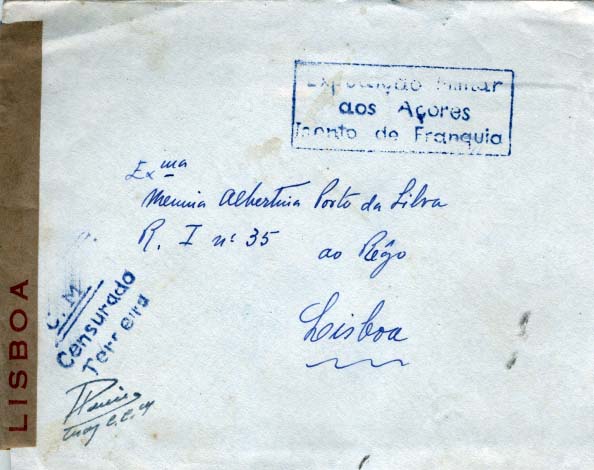 Expedição Militar
aos Açores
Isento de Franquia
Exma
Menina Albertina Porto da Silva
R. I nº 35 ao Rêgo
Lisboa
C. M.
Censurado
Terceira
LISBOA